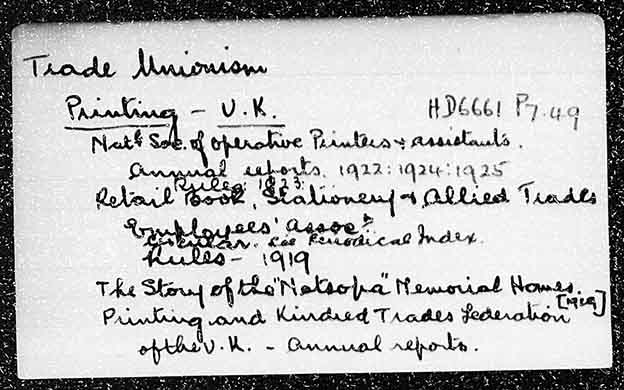 Trade Unionism
Printing - U.K. HD6661 P7.49
Natl Soc. of operative Printers & assistants.
Annual reports. 1922:1924:1925
Rules 1923
Retail Book, Stationery & Allied Trades
Employees' Assocn
Circular. see Periodical Index.
Rules - 1919
The Story of the "Natsopa" Memorial Homes.
[1919]
Printing and Kindred Trades Federation
of the U.K. - Annual reports.